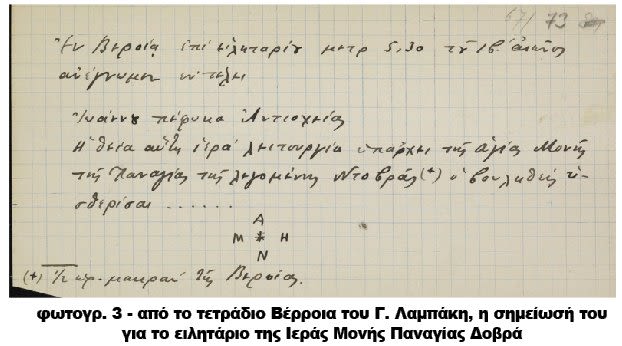 73
Ἐν Βεροίᾳ ἐπὶ εἰληταρίου μετρ 5,30 τοῦ ιβ. αἰῶνος
ἀνέγνωμεν
Ἰωάννου πέφυκα Ἀντιοχείας
Ἡ θεία αὕτη ἱερὰ λειτουργία ὑπάρχει τῆς ἁγίας Μονῆς
τῆς Παναγίας τῆς λεγομένης Ντοβράς (+) ὁ βουληθεὶς ὑ-
στερίσαι ......
Α
Μ Η
Ν
(+) 1/2 μακρὰν τῆς Βεροίας.
φωτογρ. 3 - από το τετράδιο Βέρροια του Γ. Λαμπάκη, η σημείωσή του
για το ειλητάριο της Ιεράς Μονής Παναγίας Δοβρά